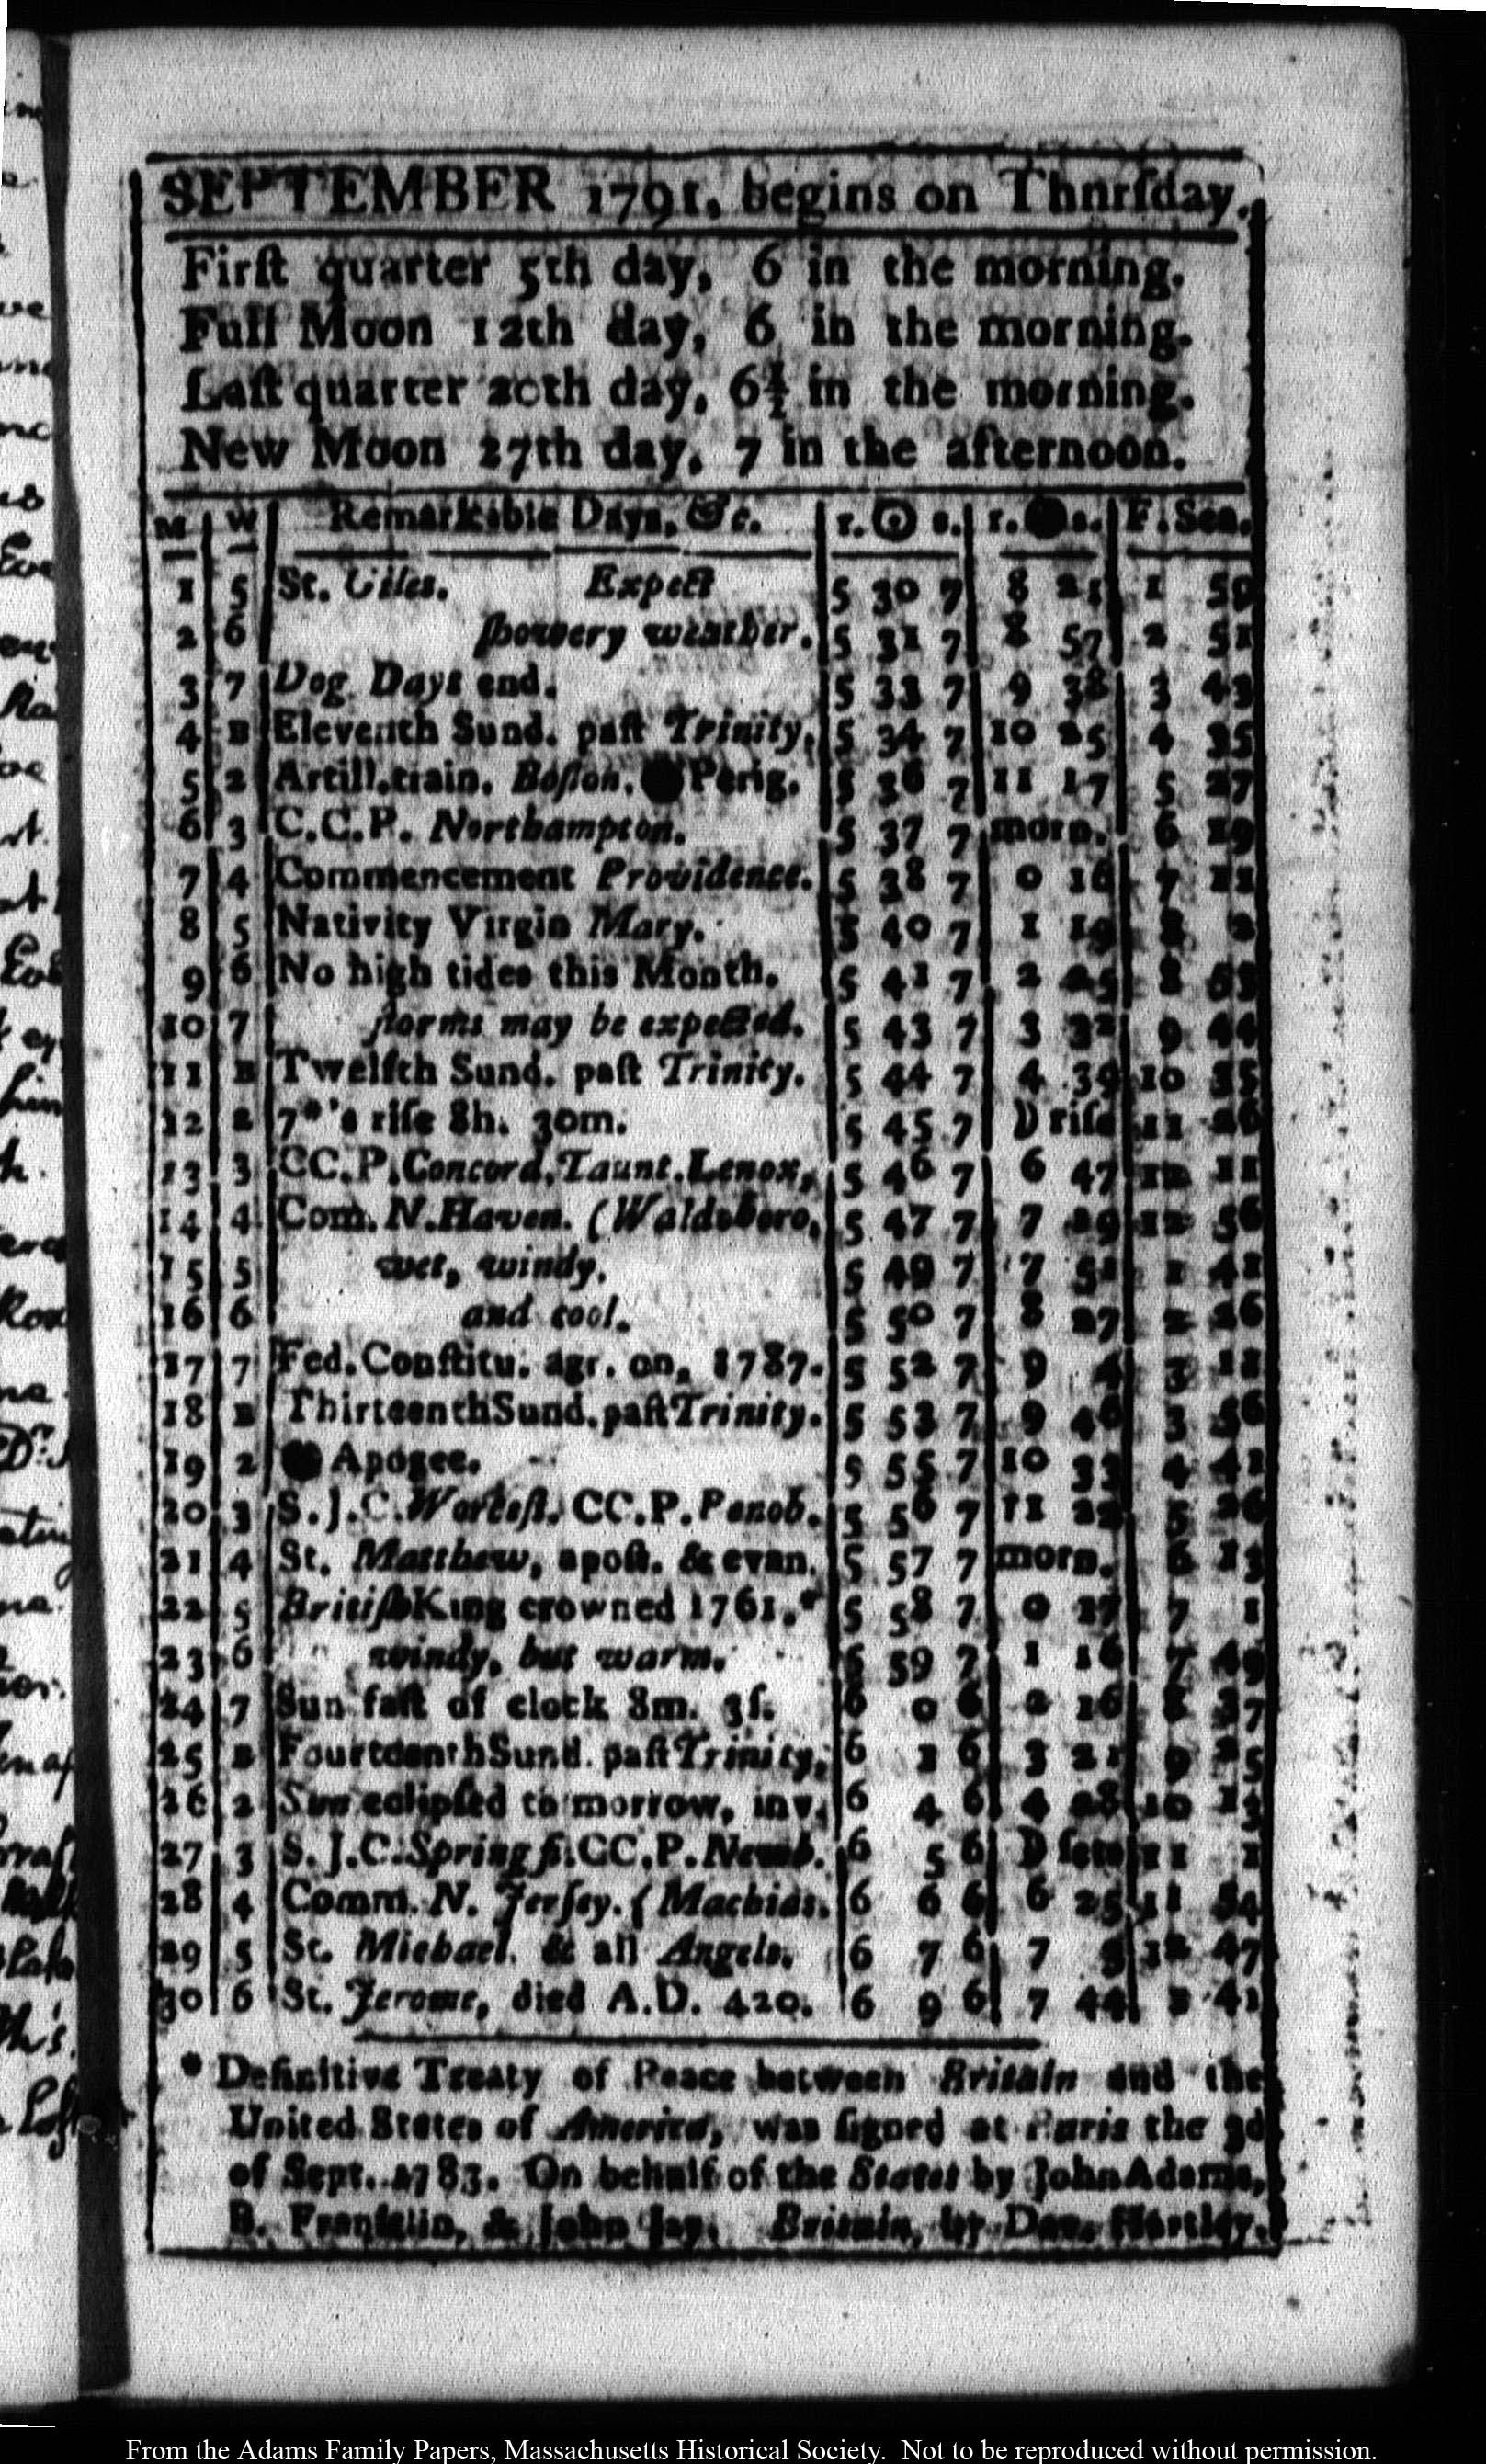 SEPTEMBER 1791, begins on Thnrſday.
Firſt quarter 5th day, 6 in the morning.
Full Moon 12th day, 6 in the morning.
Laſt quarter 20th day, 6½ in the morning.
New Moon 27th day, 7 in the afternoon.
M W Remarkable Days, &c. r. ☉ s. r. ● s. F. Sea.
1 5 St. Giles. Expect 5 30 7 8 21 1 59
2 6 ſhowery weather. 5 31 7 8 57 2 51
3 7 Dog Days end. 5 33 7 9 38 3 43
4 B Eleventh Sund. paſt Trinity. 5 34 7 10 25 4 35
5 2 Artill. train. Boſton. ● Perig. 5 36 7 11 17 5 27
6 3 C.C.P. Northampton. 5 37 7 morn. 6 19
7 4 Commencement Providence. 5 38 7 0 16 7 11
8 5 Nativity Virgin Mary. 5 40 7 1 19 8 2
9 6 No high tides this Month. 5 41 7 2 25 8 53
10 7 ſtorms may be expected. 5 43 7 3 32 9 44
11 B Twelfth Sund. paſt Trinity. 5 44 7 4 39 10 35
12 2 7*'s riſe 8h. 30m. 5 45 7 D riſe 11 26
13 3 CC.P. Concord, Taunt. Lenox, 5 46 7 6 47 12 11
14 4 Com. N. Haven. (Waldoboro. 5 47 7 7 19 12 56
15 5 wet, windy, 5 49 7 7 51 1 41
16 6 and cool. 5 50 7 8 27 2 26
17 7 Fed. Conſtitu. agr. on, 1787. 5 52 7 9 4 3 11
18 B Thirteenth Sund. paſt Trinity. 5 53 7 9 46 3 56
19 2 ● Apogee. 5 55 7 10 33 4 41
20 3 S.J.C. Worceſt. CC.P. Penob. 5 56 7 11 22 5 26
21 4 St. Matthew, apoſt. & evan. 5 57 7 morn. 6 13
22 5 Britiſh King crowned 1761.* 5 58 7 0 17 7 1
23 6 windy, but warm. 5 59 7 1 16 7 49
24 7 Sun faſt of clock 8m. 3ſ. 6 0 6 2 16 8 37
25 B Fourteenth Sund. paſt Trinity, 6 1 6 3 21 9 25
26 2 Sun eclipſed to morrow, inv. 6 4 6 4 28 10 13
27 3 S.J.C. Springf. CC.P. Newb. 6 5 6 D ſets 11 1
28 4 Comm. N. Jerſey. (Machias. 6 6 6 6 25 11 54
29 5 St. Michael. & all Angels. 6 7 6 7 3 12 47
30 6 St. Jerome, died A.D. 420. 6 9 6 7 44 1 41
* Definitive Treaty of Peace between Britain and the
United States of America, was ſigned at Paris the 3d
of Sept. 1783. On behalf of the States by John Adams,
B. Franklin, & John Jay. Britain, by Dav. Hartley.
From the Adams Family Papers, Massachusetts Historical Society. Not to be reproduced without permission.